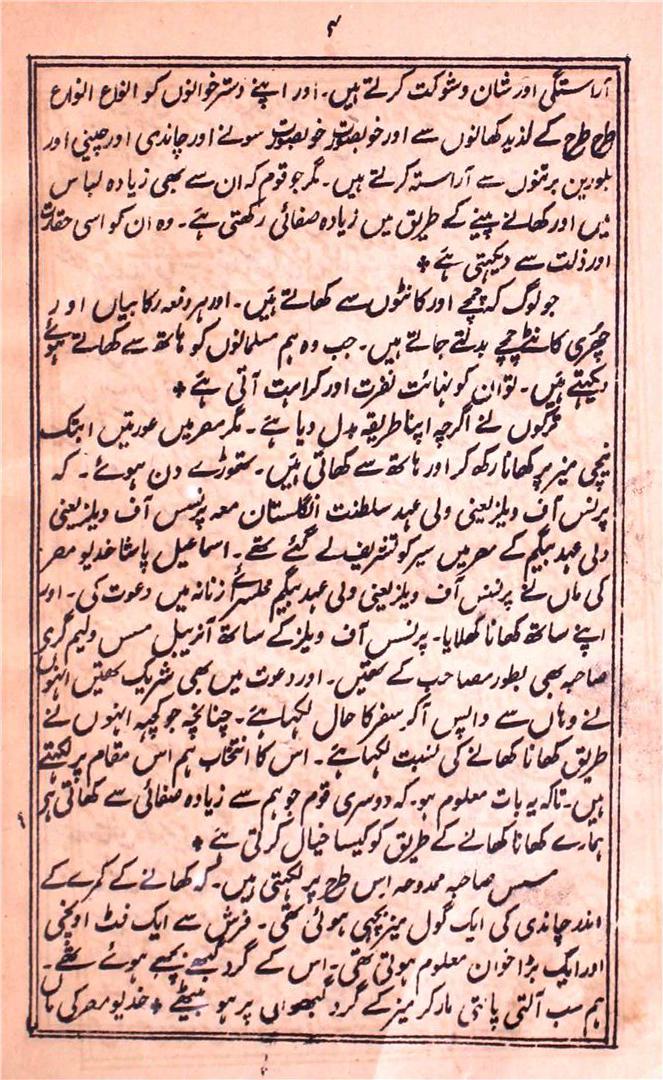 ۴
آراستگی اور شان و شوکت کرتے ہیں۔ اور اپنے دسترخوانوں کو انواع انواع
طرح طرح کے لذیذ کھانوں سے اور خوبصورت خوبصورت سونے اور چاندی اور چینی اور
بلورین برتنوں سے آراستہ کرتے ہیں۔ مگر جو قوم کہ ان سے بھی زیادہ لباس
میں اور کھانے پینے کے طریق میں زیادہ صفائی رکھتی ہے۔ وہ ان کو اسی حقارت
اور ذلت سے دیکہتی ہے *
جو لوگ کہ چمچے اور کانٹوں سے کھاتے ہیں۔ اور ہر دفعہ رکابیاں اور
چھُری کانٹے چمچے بدلتے جاتے ہیں۔ جب وہ ہم مسلمانوں کو ہاتھ سے کھاتے ہوئے
دیکہتے ہیں۔ تو ان کو نہائت نفرت اور کراہت آتی ہے *
تُرکوں نے اگرچہ اپنا طریقہ بدل دیا ہے۔ مگر مصر میں عورتیں ابتک
نیچی میز پر کھانا رکھ کر اور ہاتھ سے کھاتی ہیں۔ تھوڑے دن ہوئے۔ کہ
پرنس آف ویلز یعنی ولی عہد سلطنت انگلستان معہ پرنسس آف ویلز یعنی
ولی عہد بیگم کے مصر میں سیر کو تشریف لے گئے تھے۔ اسماعیل پاشا خدیو مصر
کی ماں نے پرنسس آف ویلز یعنی ولی عہد بیگم محلسرائے زنانہ میں دعوت کی۔ اور
اپنے ساتھ کھانا کھلایا۔ پرنسس آف ویلز کے ساتھ آنریبل مسس ولیم گری
صاحبہ بھی بطور مصاحب کے تھیں۔ اور دعوت میں بھی شریک تھیں انہوں
نے وہاں سے واپس آکر سفر کا حال لکہا ہے۔ چنانچہ جو کچہہ انہوں نے
طریق کھانا کھانے کی نسبت لکہا ہے۔ اس کا انتخاب ہم اس مقام پر لکہتے
ہیں۔ تاکہ یہ بات معلوم ہو۔ کہ دوسری قوم جو ہم سے زیادہ صفائی سے کھاتی ہے
ہمارے کھانا کھانے کے طریق کو کیسا خیال کرتی ہے *
مسس صاحبہ ممدوحہ اس طرح پر لکہتی ہیں۔ کہ کھانے کے کمرے کے
اندر چاندی کی ایک گول میز بچھی ہوئی تھی۔ فرش سے ایک فٹ اونچی
اور ایک بڑا خوان معلوم ہوتی تھی۔ اس کے گرد گبھے بچھے ہوئے تھے۔
ہم سب آلتی پالتی مار کر میز کے گرد گبھوں پر ہو بیٹھے * خدیو مصر کی ماں